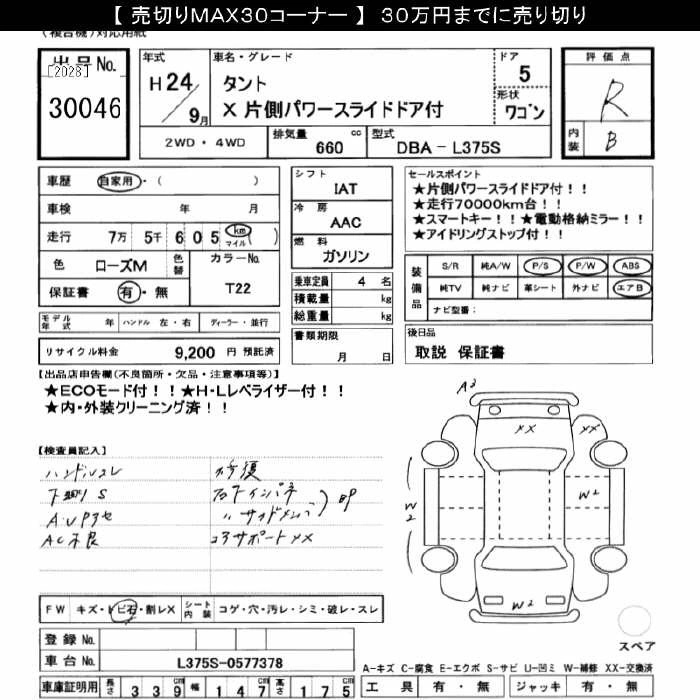 【 売切りMAX30コーナー 】 30万円までに売り切り
(複合機)対応用紙
出品No.
[2028]
30046
年式
H24/9月
車名・グレード
タント
X 片側パワースライドドア付
ドア
5
形状
ワゴン
2WD・4WD
排気量
660 cc
型式
DBA - L375S
評価点
R
内装
B
車歴 自家用・( )
車検 年 月
走行 7万 5千 6 0 5 km マイル ( )
色 ローズM 色替 カラーNo.
T22
保証書 有・無
モデル年式 年 ハンドル 左・右 ディーラー・並行
リサイクル料金 9,200 円 預託済
シフト
IAT
冷房
AAC
燃料
ガソリン
乗車定員 4 名
積載量 kg
総重量 kg
書類期限
月 日
セールスポイント
★片側パワースライドドア付!!
★走行70000km台!!
★スマートキー!!★電動格納ミラー!!
★アイドリングストップ付!!
装備品
S/R 純A/W P/S P/W ABS
純TV 純ナビ 革シート 外ナビ エアB
ナビ型番:
後日品
取説 保証書
【出品店申告欄(不良箇所・欠品・注意事項等)】
★ECOモード付!!★H・Lレベライザー付!!
★内・外装クリーニング済!!
【検査員記入】
ハンドルスレ
下廻りS
AC不良
修復
コアサポートXX
A3
XX
XX
W2
W2
W2
FW キズ・トビ石・割レX
シート内装 コゲ・穴・汚レ・シミ・破レ・スレ
登録No.
車台No. L375S-0577378
車庫証明用 長さ 339cm 幅 147cm 高さ 175cm
スペア
A-キズ C-腐食 E-エクボ S-サビ U-凹ミ W-補修 XX-交換済
工具 有・無 ジャッキ 有・無